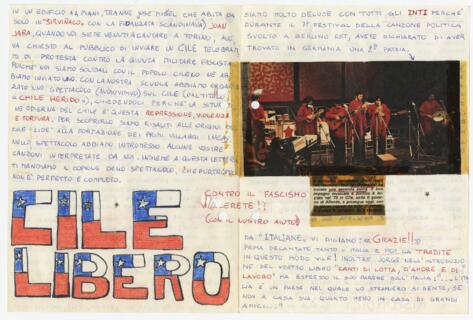 IN UN EDIFICIO A 4 PIANI, TRANNE JOSÈ MIGUEL CHE ABITA DA
SOLO IN "SIRVIÑACO, CON LA FIDANZATA SCANDINAVA), JOAN
JARA, QUANDO VOI SIETE VENUTI A CANTARE A TORINO, AVE-
VA CHIESTO AL PUBBLICO DI INVIARE IN CILE TELEGRAM
DI PROTESTA CONTRO LA GIUNTA MILITARE FASCISTA.
POICHÈ NOI SIAMO SOLIDALI CON IL POPOLO CILENO NE AB-
BIAMO INVIATO UNO. CON LA NOSTRA SCUOLA ABBIAMO ORGANIZ-
ZATO UNO SPETTACOLO SUL CILE
"CHILE HERIDO"), CHIEDENDOCI PERCHÈ LA SITUA-
NE ODIERNA DEL CILE È QUESTA REPRESSIONE, VIOLENZA
E TORTURA. PER SCOPRIRLO SIAMO RISALITI ALLE ORIGINI
ALLA FORMAZIONE DEI PRIMI VILLAGGI INCAS.
NELLO SPETTACOLO ABBIAMO INTRODOTTO ALCUNE VOSTRE
CANZONI INTERPRETATE DA NOI. INSIEME A QUESTA LETTERA
TI MANDIAMO IL COPIONE DELLO SPETTACOLO, CHE PURTROPPO
NON È PERFETTO E COMPLETO.
CILE
LIBERO
CONTRO IL FASCISMO
VINCERETE!!
(CON IL NOSTRO AIUTO)
SIAMO MOLTO DELUSE CON TUTTI GLI INTI PERCHÈ
DURANTE IL 7° FESTIVAL DELLA CANZONE POLITICA
SVOLTO A BERLINO EST, AVETE DICHIARATO DI AVER
TROVATO IN GERMANIA UNA 2ª PATRIA.
DA "ITALIANE" VI DICIAMO: "GRAZIE!!"
PRIMA DECANTATE TANTO L'ITALIA E POI LA TRADITE
IN QUESTO MODO VILE! INOLTRE JORGE NELL'INTRODUZIO
NE DEL VOSTRO LIBRO "CANTI DI LOTTA, D'AMORE E DI
LAVORO" HA ESPRESSO IL SUO PARERE SULL'ITALIA:
È UN PAESE NEL QUALE LO STRANIERO SI SENTE, SE
NON A CASA SUA QUANTO MENO IN CASA DI GRANDI
AMICI...!